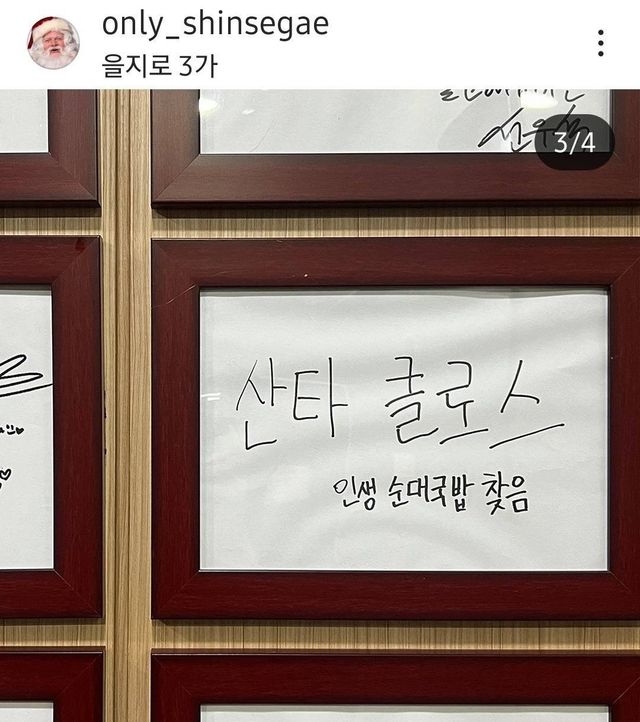 only_shinsegae
을지로 3가
3/4
산타 클로스
인생 순대국밥 찾음